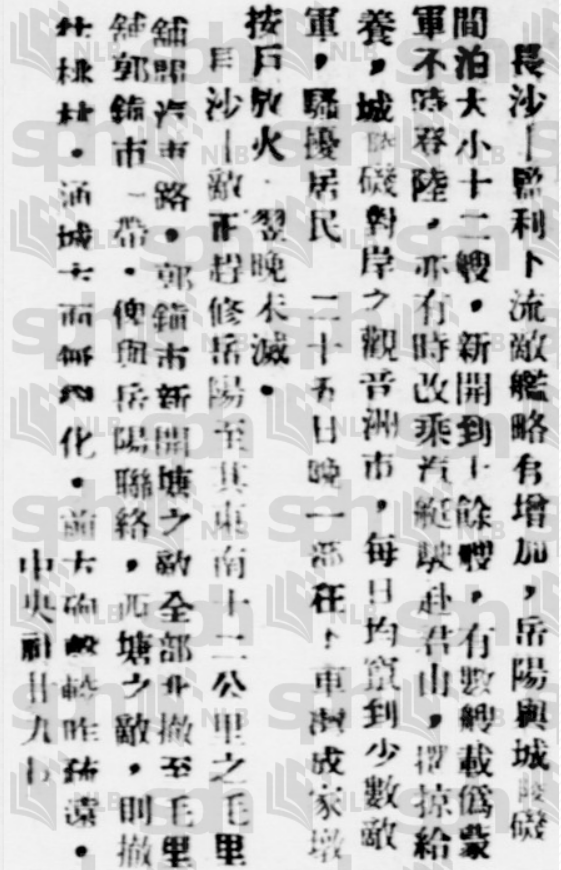 長沙—監利下流敵艦略有增加，岳陽與城陵磯
間泊大小十二艘。新開到十餘艘，有數艘載僞蒙
軍不時登陸，亦有時改乘汽艇駛赴君山，擄掠給
養，城陵磯對岸之觀音洲市，每日均竄到少數敵
軍，騷擾居民 二十五日晚一部在下車灣成家墩
按戶放火 翌晚未滅。
長沙—敵正趕修岳陽至其東南十二公里之毛里
舖間汽車路。郭鎮市新開塘之敵全部北撤至毛里
舖郭鎮市一帶。俾與岳陽聯絡，西塘之敵，則撤
桃林。城方面無變化。前方砲聲較昨稍遠。
中央社廿九日